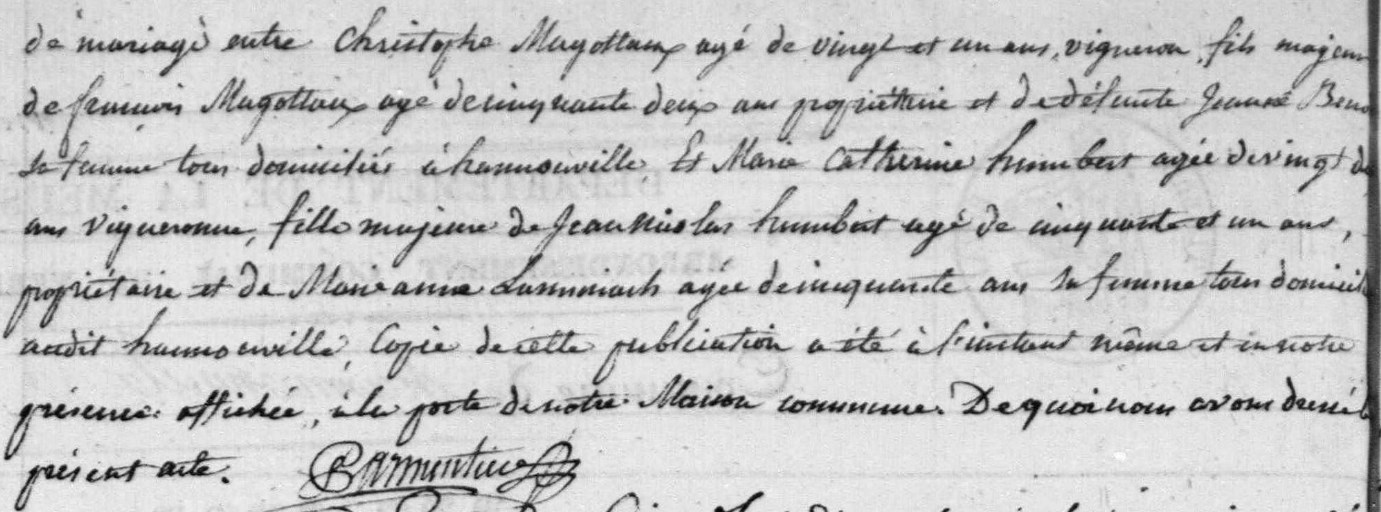 de mariage entre Christophe Magottaux agé de vingt et un ans, vigneron, fils majeur
de francois Magottaux agé de cinquante deux ans propriétaire et de défunte Jeanne
sa femme tous domiciliés à hannonville Et Marie Catherine humbert agée de vingt
ans vigneronne, fille majeure de Jean Nicolas humbert agé de cinquante et un ans,
propriétaire et de Marie anne agée de cinquante ans sa femme tous domicil
audit hannonville Copie de cette publication a été à l'instant même et en notre
présence affichée, à la porte de notre Maison commune. De quoi nous avons dressé le
présent acte. Parmentier